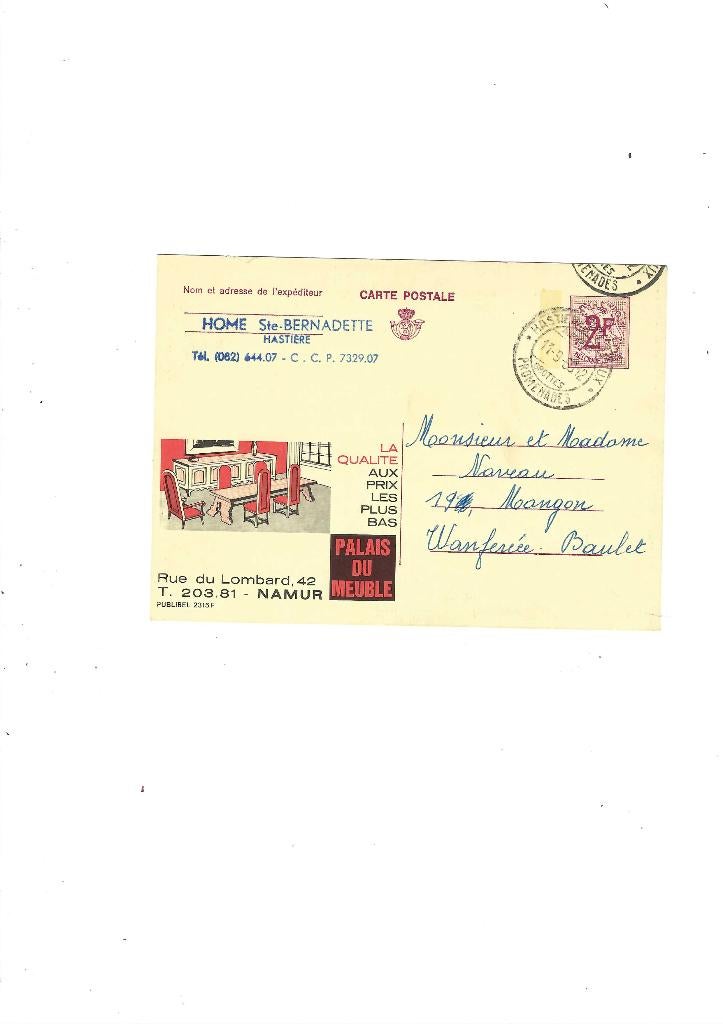 Nom et adresse de l'expéditeur
CARTE POSTALE
HOME Ste-BERNADETTE
HASTIÈRE
Tél. (082) 644.07 - C. C. P. 7329.07
2F
PROMENADES
Monsieur et Madame
Naveau
Mangon
Wanferée-Baulet
LA
QUALITE
AUX
PRIX
LES
PLUS
BAS
PALAIS
DU
MEUBLE
Rue du Lombard, 42
T. 203.81 - NAMUR
PUBLIBEL 2315F